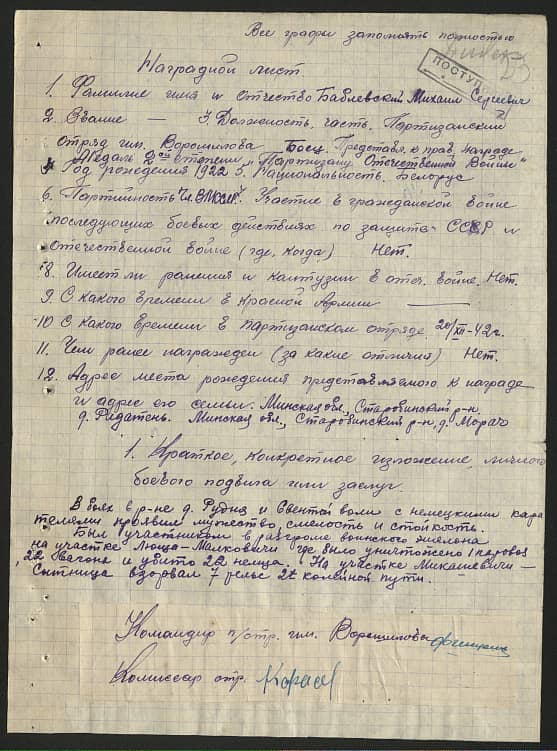 Все графы заполнять полностью
ПОСТУП
Наградной лист.
1. Фамилие имя и отчество Бablевский Михаил Сергеевич
2. Звание — 3. Должность, часть. Партизанский
отряд им. Ворошилова Боец. Представл. к прав. награде
Медаль 2ой степени "Партизану Отечественной Войны"
4 Год рождения 1922 5. Национальность. Белорус
6. Партийность Чл. ВЛКСМ 7. Участие в гражданской войне
последующих боевых действиях по защите СССР и
отечественной войне (где, когда) Нет.
8. Имеет ли ранения и контузии в отеч. войне. Нет.
9. С какого времени в Красной Армии ——
10 С какого времени в партизанском отряде 20/XII-42г.
11. Чем ранее награжден (за какие отличия) Нет.
12. Адрес места рождения представляемого к награде
и адрес его семьи. Минская обл., Старобинский р-н.
д. Рядатень. Минская обл., Старобинский р-н, д. Морач
1. Краткое, конкретное изложение, личного
боевого подвига или заслуг.
В боях в р-не д. Рудня и Свентой воли с немецкими кара
телями проявил мужество, смелость и стойкость.
Был участником в разгроме воинского эшелона
на участке Люща-Малковичи где было уничтожено 1 паровоз
22 вагона и убито 22 немца. На участке Микашевичи —
Сытница взорвал 7 рельс 2х колейной пути.
Командир п/отр. им. Ворошилова
Комиссар отр.